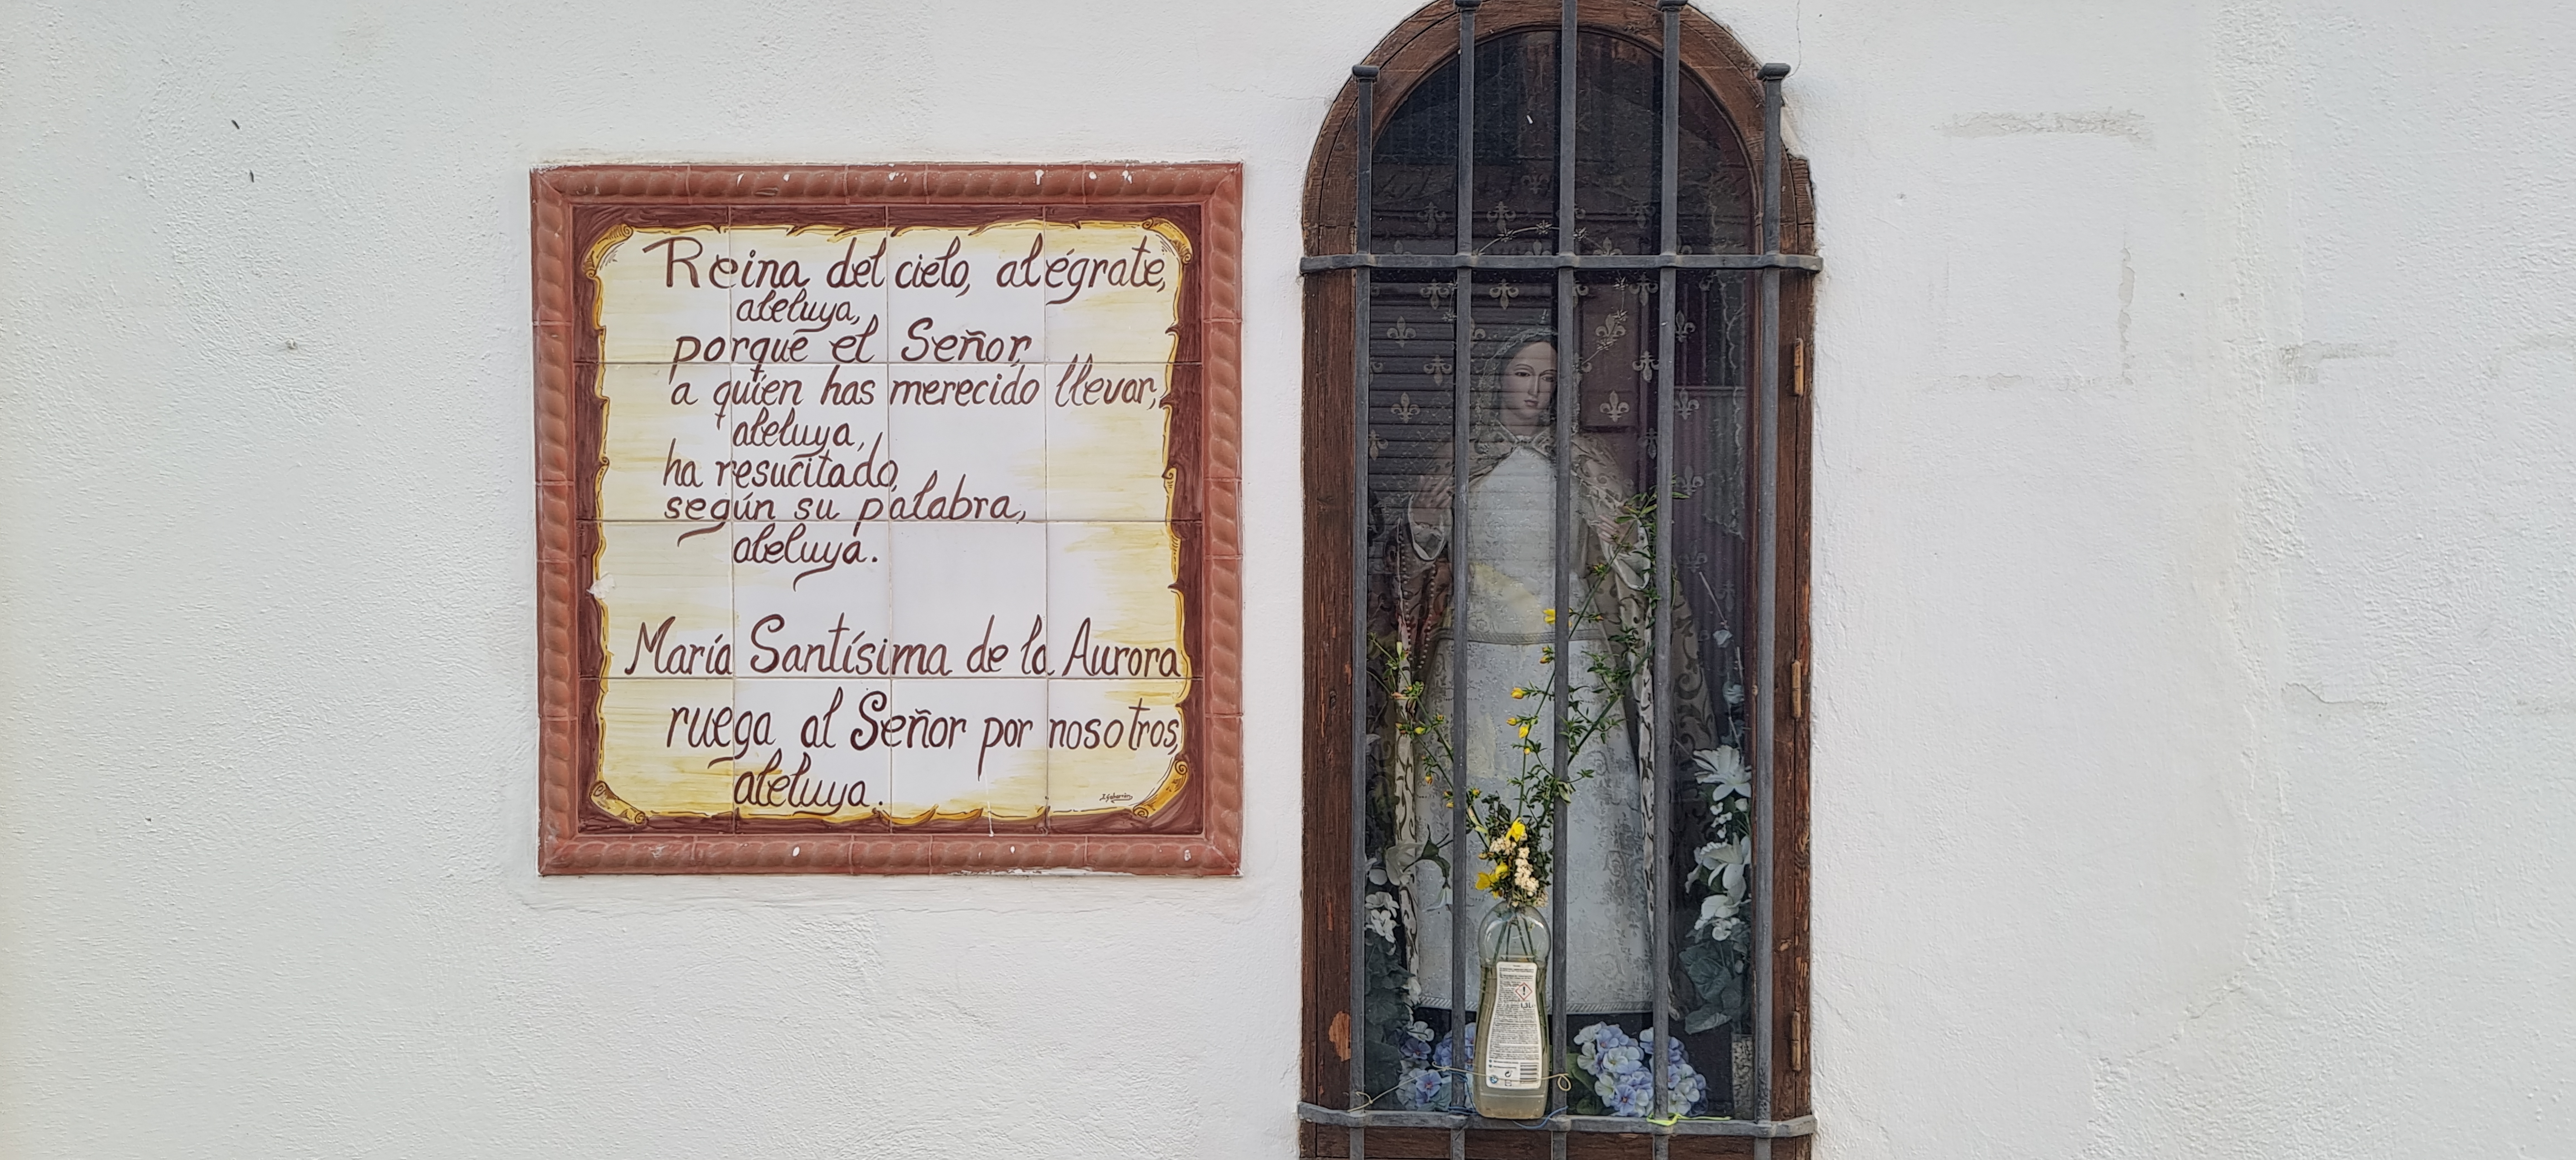 Reina del cielo, alégrate,
aleluya,
porque el Señor,
a quien has merecido llevar,
aleluya,
ha resucitado,
según su palabra,
aleluya.
María Santísima de la Aurora
ruega al Señor por nosotros,
aleluya.